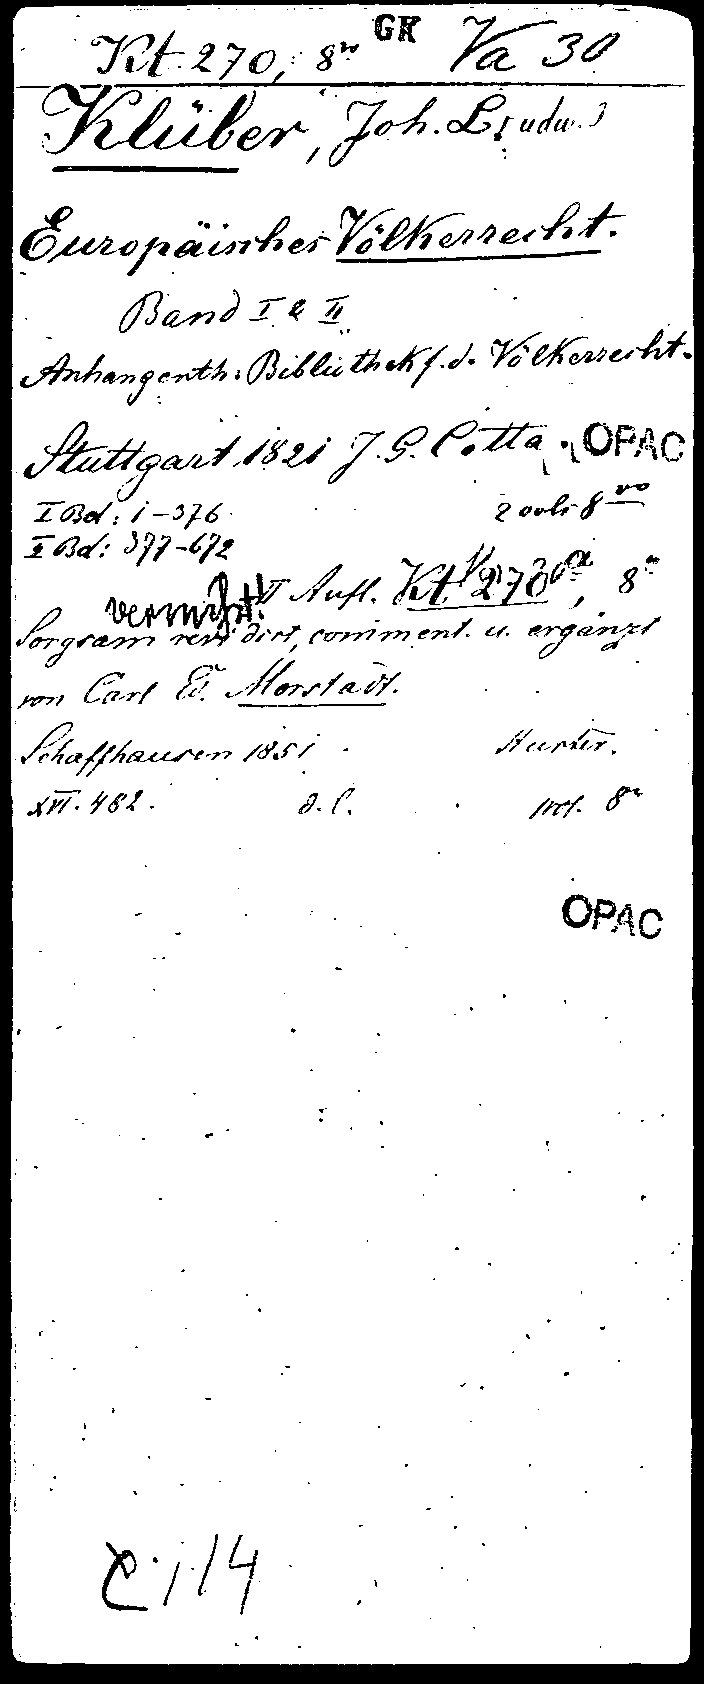 Kt 270, 8vo GK Va 30
Klüber, Joh. L(udw.)
Europäisches Völkerrecht.
Band I & II
Anhang enth: Bibliothek f. d. Völkerrecht.
Stuttgart 1821 J. G. Cotta. OPAC
I Bd: 1-376 2 vols 8vo
II Bd: 377-672
II Aufl. Kt 270a, 8o
vernicht!
Sorgsam revidirt, comment. u. ergänzt
von Carl Ed. Morstadt.
Schaffhausen 1851 Hurter.
XVI. 482. d. C. 1 vol. 8o
OPAC
C. 1/4